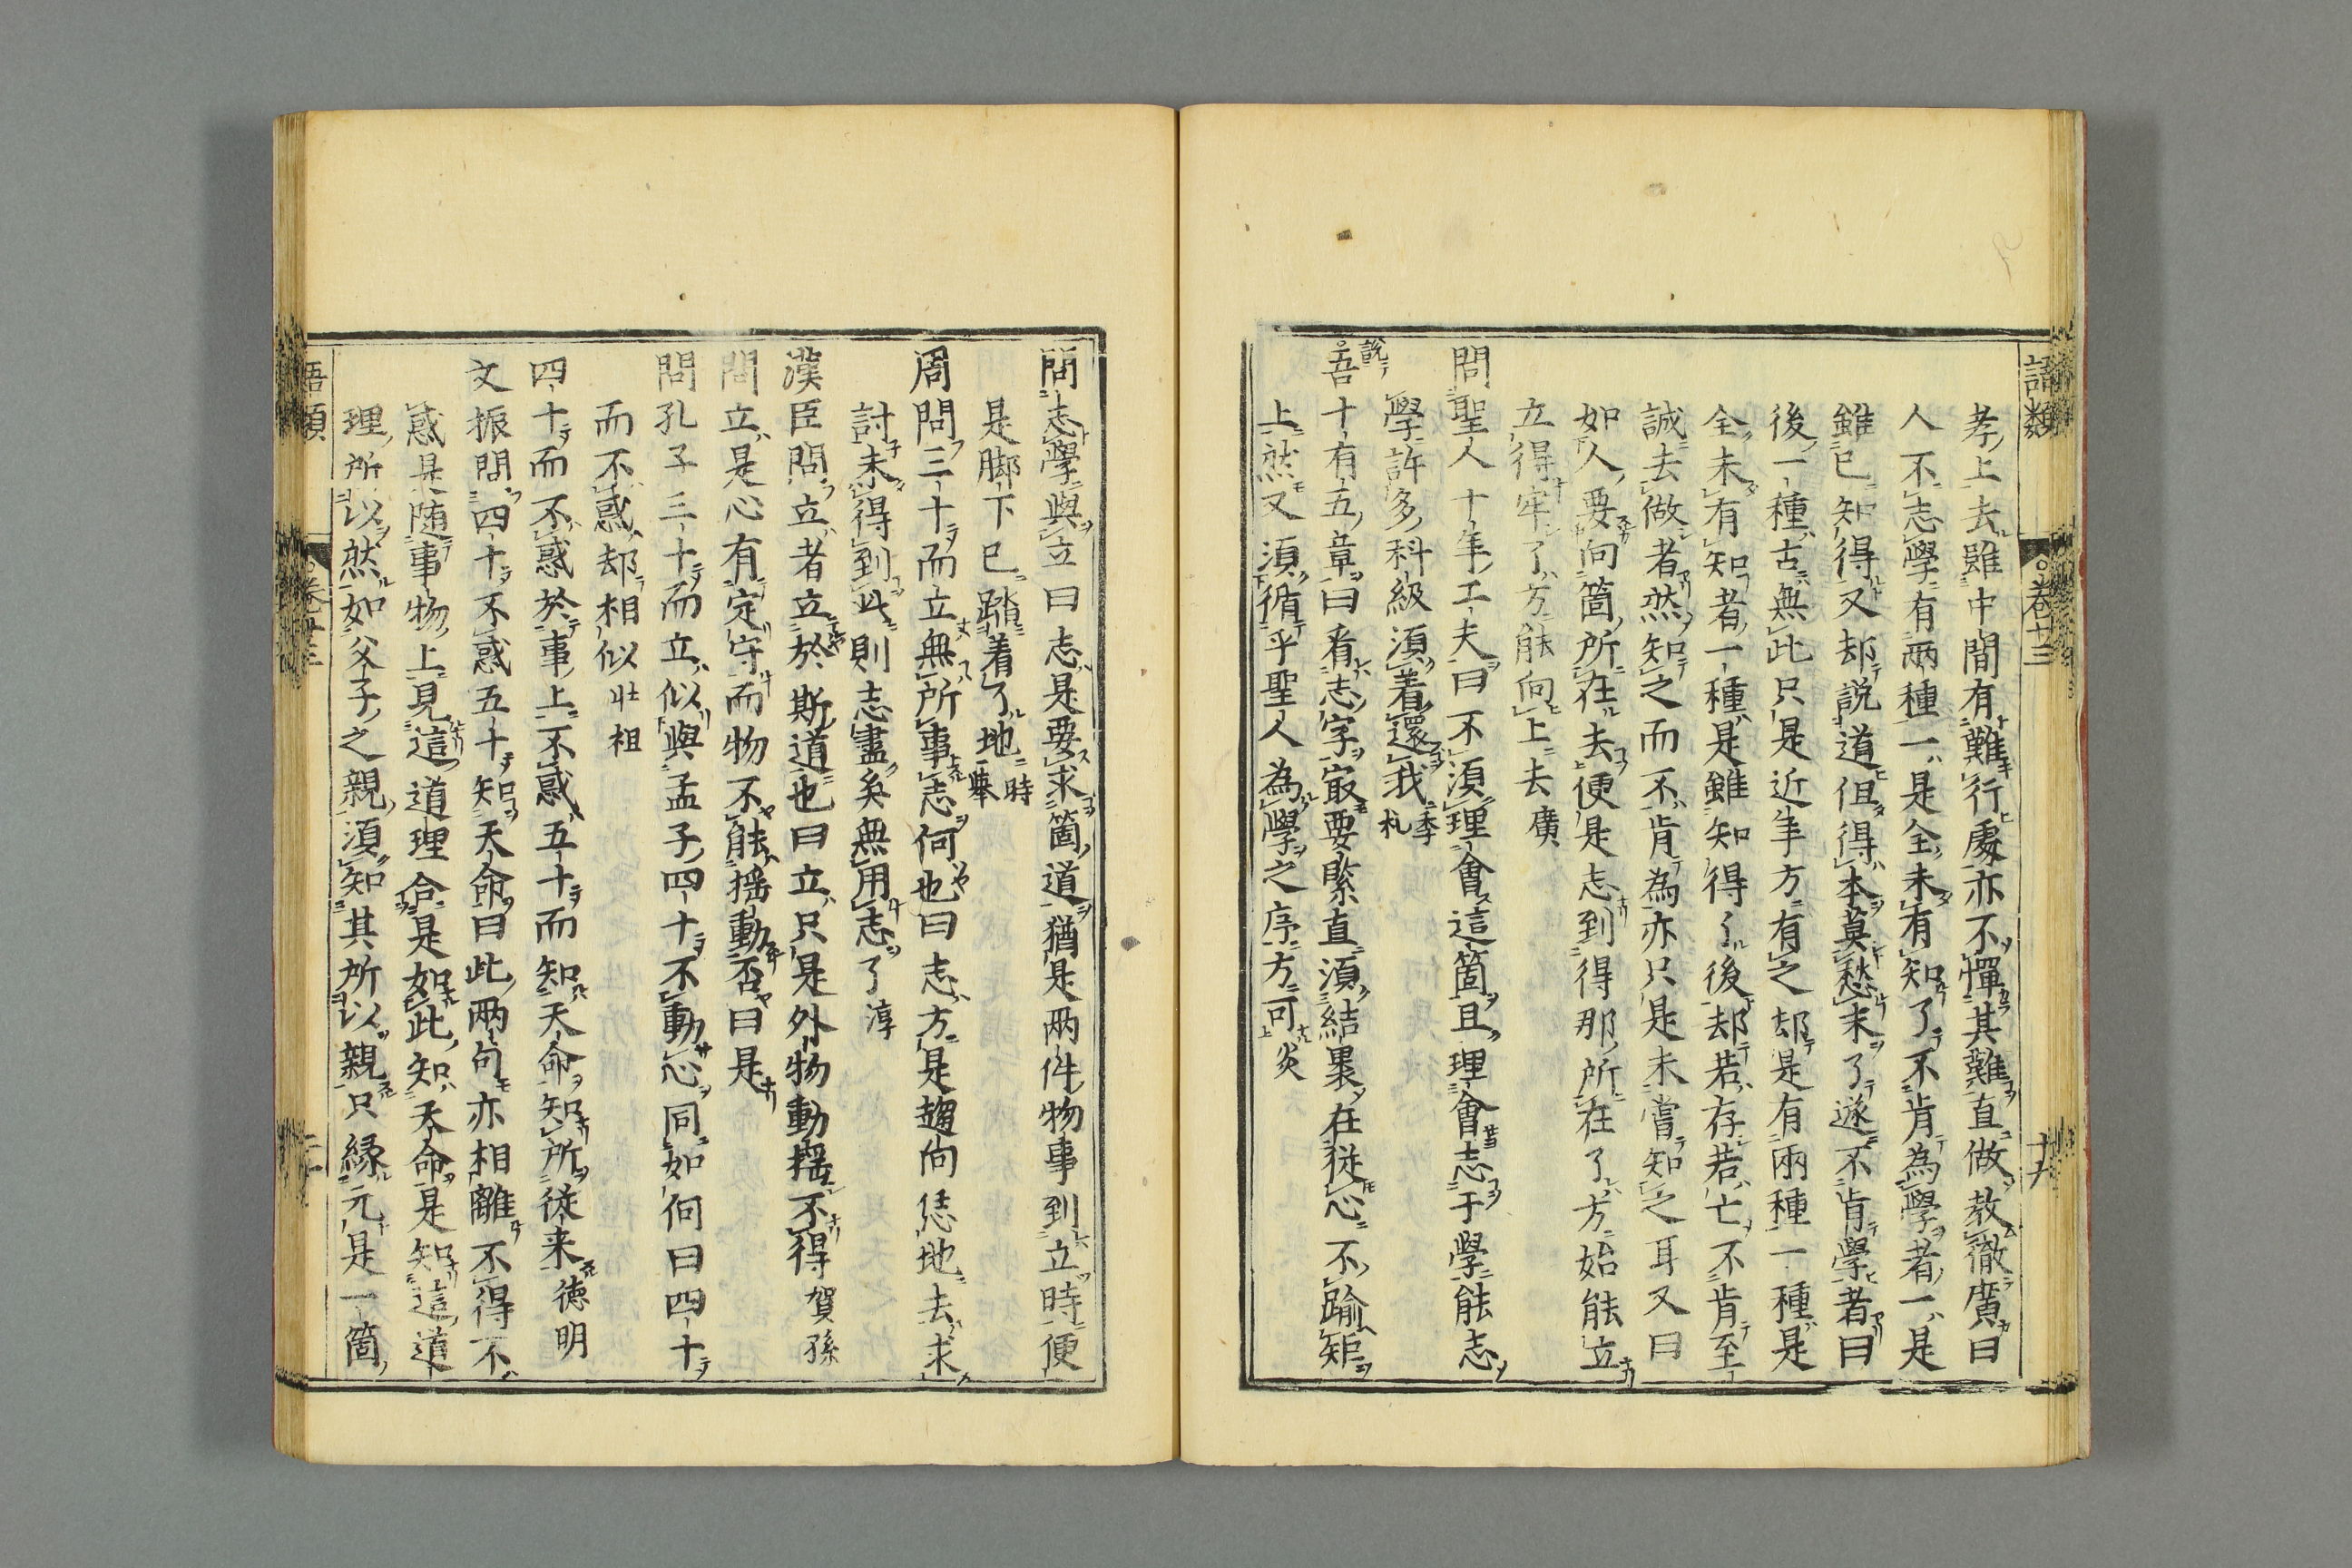 語類
卷十三
十九
孝上去雖中間有難行處亦不憚其難直做教徹廣曰
人不志學有兩種一是全未有知了不肯為學者一是
雖已知得又却說道但得本莫愁末了遂不肯學者曰
後一種古無此只是近年方有之却是有兩種一種是
全未有知者一種是雖知得了後却若存若亡不肯至
誠去做者然知之而不肯為亦只是未嘗知之耳又曰
如人要向箇所在去便是志到得那所在了方始能立
立得牢了方能向上去廣
問聖人十年工夫曰不須理會這箇且理會志于學能志
學許多科級須著還我季札
說
吾十有五章曰看志字最要緊直須結裹在從心不踰矩
上然又須循乎聖人為學之序方可炎
問志學與立曰志是要求箇道猶是兩件物事到立時便
是脚下已踏着了地時舉
周問三十而立無所事志何也曰志方是趨向恁地去求
討未得到此則志盡矣無用志了淳
漢臣問立者立於斯道也曰立只是外物動搖不得賀孫
問立是心有定守而物不能搖動否曰是
問孔子三十而立似與孟子四十不動心同如何曰四十
而不惑却相似壮祖
四十而不惑於事上不惑五十而知天命知所從来德明
文振問四十不惑五十知天命曰此兩句亦相離不得不
惑是随事物上見這道理合是如此知天命是知這道
理所以然如父子之親須知其所以親只縁元是一箇
語類
二十